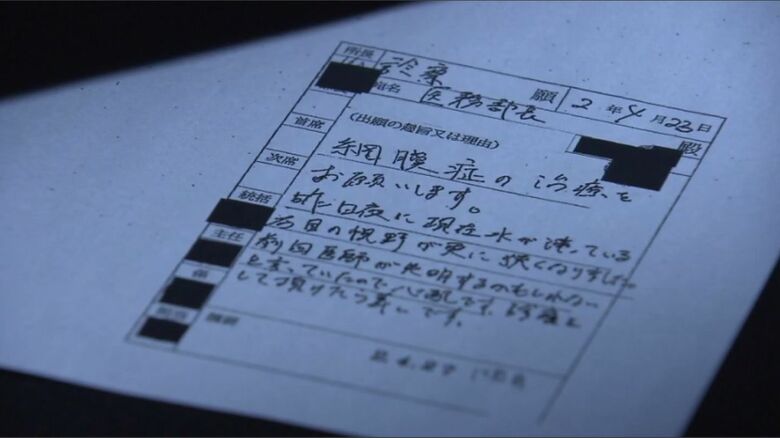 所長
診療 願 2年4月23日
宛名 医務部長 殿
首席
(出願の趣旨又は理由)
網膜症の治療を
次席
お願いします。
統括
昨日夜に現在水が溜っている
右目の視野が更に狭くなりました。
主任
前回医師が失明するかもしれない
と言っていたので心配です。治療を
して頂けたら幸いです。
担当